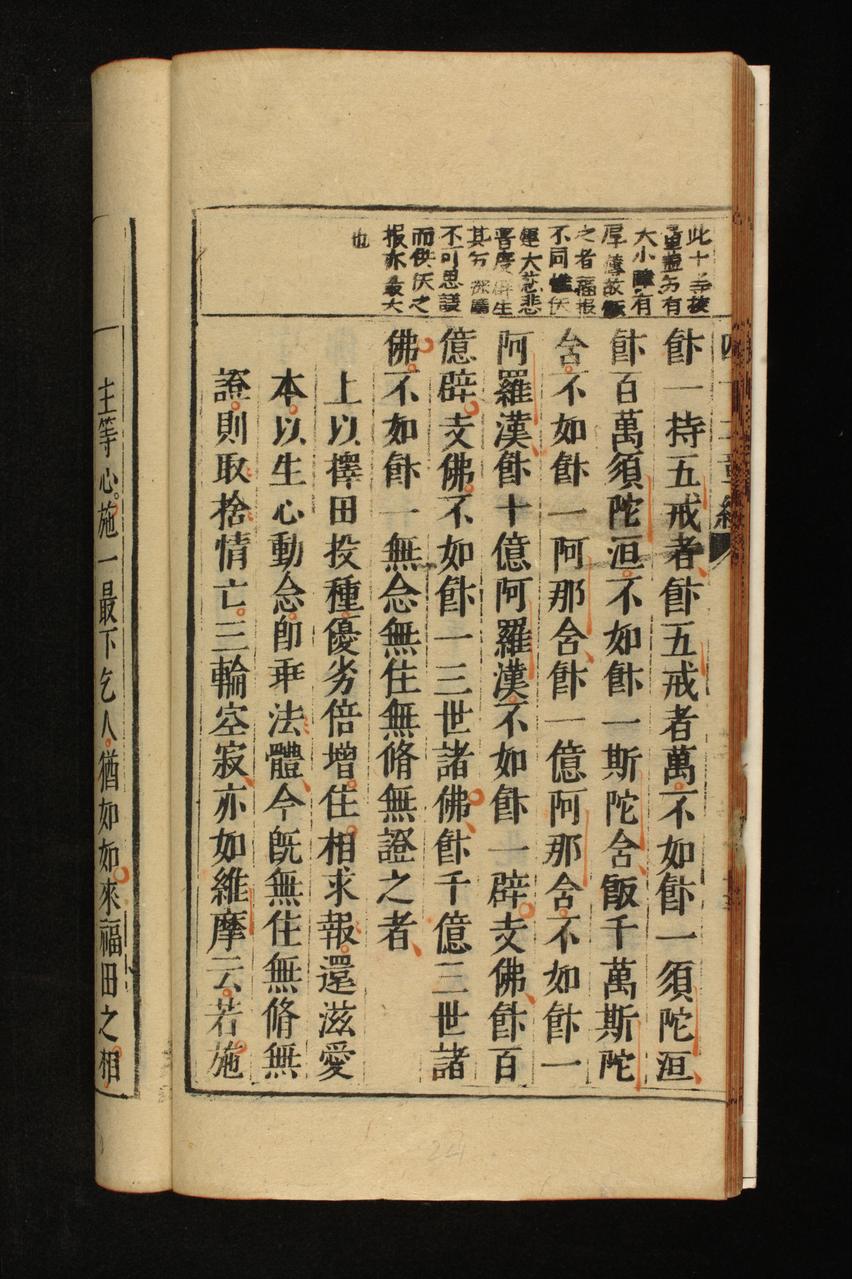 此十等校
量蓋為有
大小障有
厚薄故飯
之者福报
不同惟佚
運大慈悲
普度群生
其为深廣
不可思議
而供佚之
报亦最大
也
四十二章經
飰一持五戒者、飰五戒者萬。不如飰一須陀洹、
飰百萬須陀洹。不如飰一斯陀含、飯千萬斯陀
含。不如飰一阿那含、飰一億阿那含。不如飰一
阿羅漢、飰十億阿羅漢。不如飰一辟支佛、飰百
億辟支佛。不如飰一三世諸佛、飰千億三世諸
佛。不如飰一無念無住無脩無證之者、
上以擇田投種。優劣倍增。住相求報。還滋愛
本。以生心動念。卽乖法體、今旣無住無脩無
證。則取捨情亡。三輪空寂、亦如維摩云。若施
主等心。施一最下乞人。猶如如來福田之相。